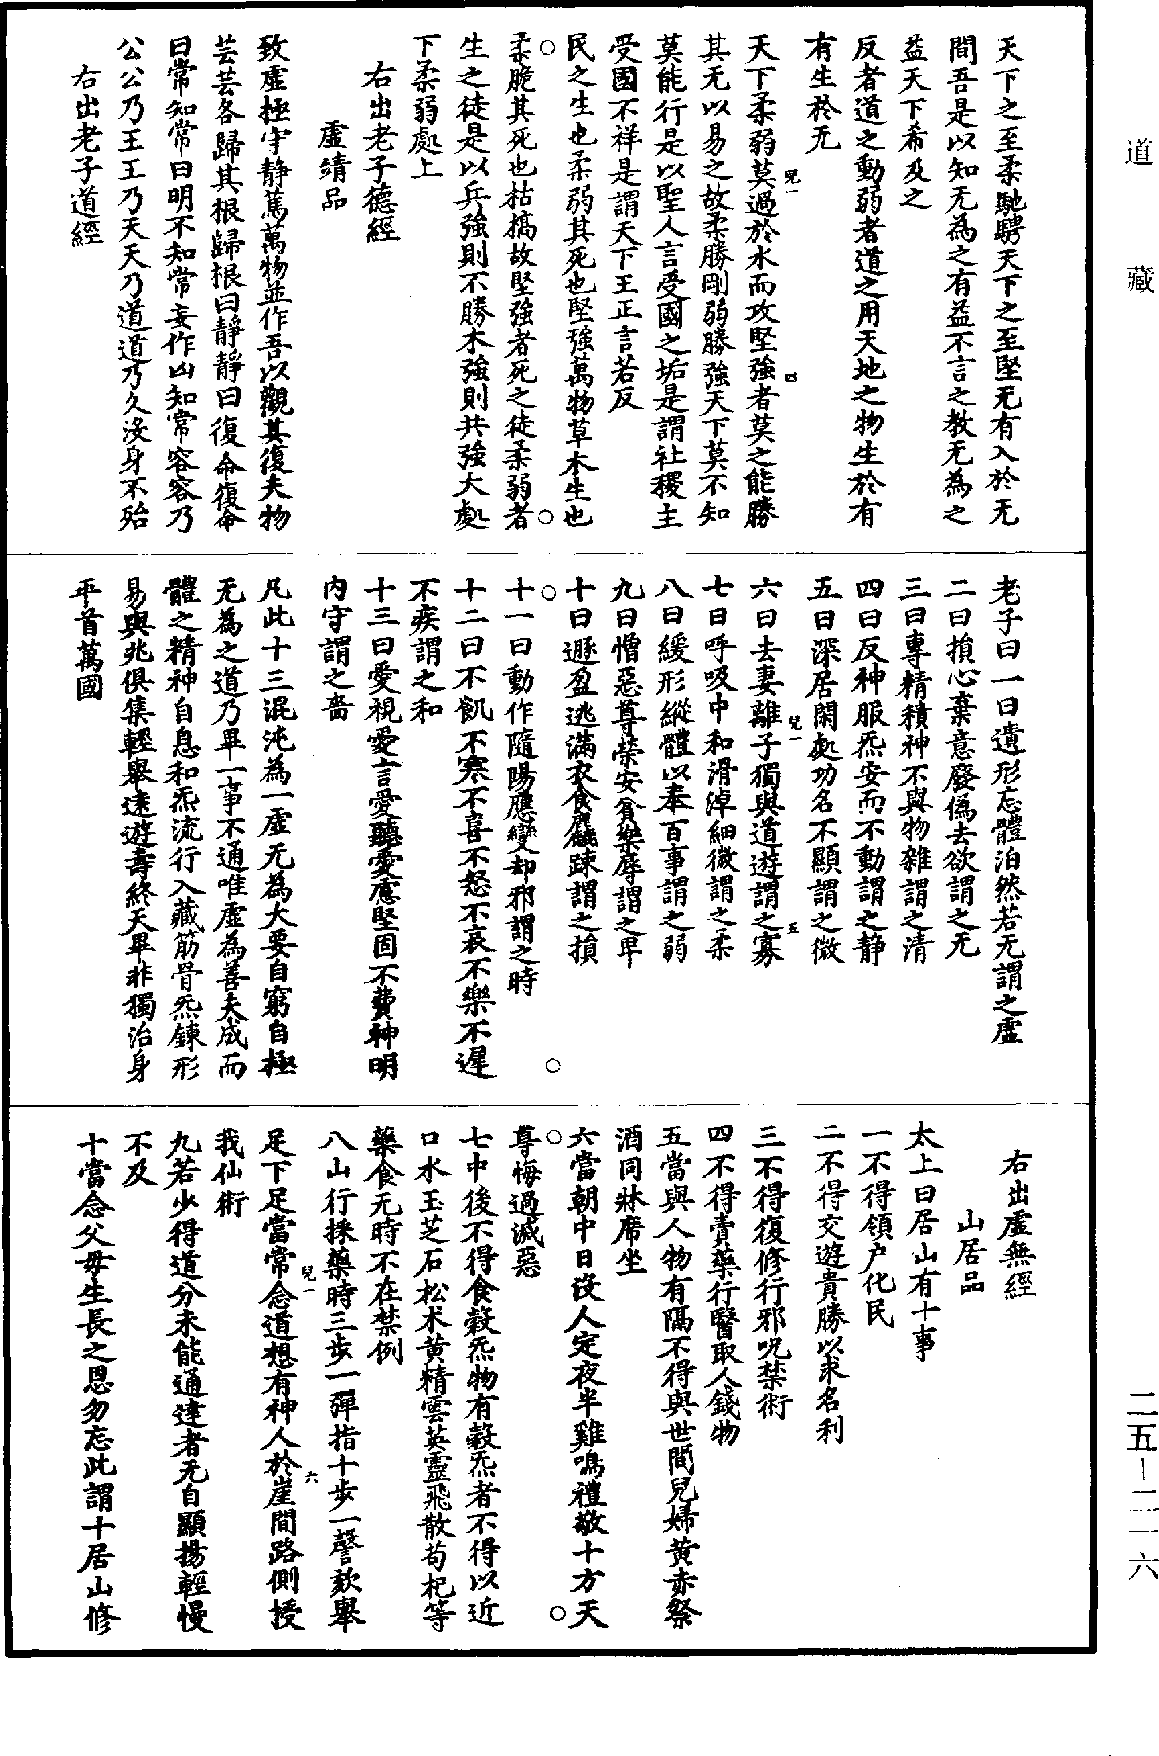 道藏
天下之至柔馳騁天下之至堅无有入於无
間吾是以知无為之有益不言之教无為之
益天下希及之
反者道之動弱者道之用天地之物生於有
有生於无
天下柔弱莫過於水而攻堅強者莫之能勝
其无以易之故柔勝剛弱勝強天下莫不知
莫能行是以聖人言受國之垢是謂社稷主
受國不祥是謂天下王正言若反
民之生也柔弱其死也堅強萬物草木生也
柔脆其死也枯槁故堅強者死之徒柔弱者
生之徒是以兵強則不勝木強則共強大處
下柔弱處上
右出老子德經
虛靖品
致虛極守靜篤萬物並作吾以觀其復夫物
芸芸各歸其根歸根曰靜靜曰復命復命
曰常知常曰明不知常妄作凶知常容容乃
公公乃王王乃天天乃道道乃久沒身不殆
右出老子道經
老子曰一曰遺形忘體泊然若无謂之虛
二曰損心棄意廢偽去欲謂之无
三曰專精積神不與物雜謂之清
四曰反神服炁安而不動謂之靜
五曰深居閑處功名不顯謂之微
六曰去妻離子獨與道遊謂之寡
七曰呼吸中和滑淖細微謂之柔
八曰緩形縱體以奉百事謂之弱
九曰憎惡尊榮安貧樂辱謂之卑
十曰遯盈逃滿衣食麤踈謂之損
十一曰動作隨陽應變却邪謂之時
十二曰不飢不寒不喜不怒不哀不樂不遲
不疾謂之和
十三曰愛視愛言愛聽愛慮堅固不費神明
內守謂之嗇
凡此十三混沌為一虛无為大要自窮自極
无為之道乃畢一事不通唯虛為善夫成而
體之精神自息和炁流行入藏筋骨炁鍊形
易與兆俱集輕舉遠遊壽終天畢非獨治身
平首萬國
右出虛無經
山居品
太上曰居山有十事
一不得領户化民
二不得交遊貴勝以求名利
三不得復修行邪呪禁術
四不得賣藥行醫取人錢物
五當與人物有隔不得與世間兒婦黃赤祭
酒同牀席坐
六當朝中日沒人定夜半雞鳴禮敬十方天
尊悔過滅惡
七中後不得食穀炁物有穀炁者不得以近
口水玉芝石松术黃精雲英靈飛散苟杞等
藥食无時不在禁例
八山行採藥時三步一彈指十步一謦欬舉
足下足當常念道想有神人於崖間路側授
我仙術
九若少得道分未能通達者无自顯揚輕慢
不及
十當念父母生長之恩勿忘此謂十居山修
兒一
四
兒一
五
兒一
六
二五—二一六